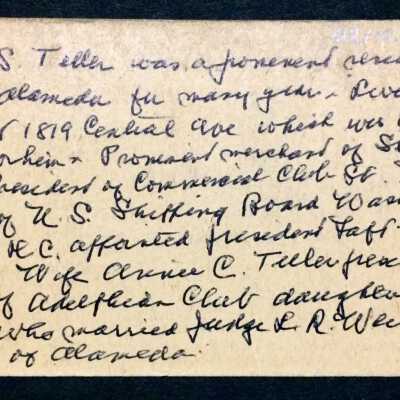 S. Teller was a prominent resi
Alameda for many years. Live
1819 Central Ave which was
Prominent merchant of S
President of Commercial Club St.
of U. S. Shipping Board Was
D.C. appointed president Taft
Wife Annie C. Teller pres
of Adelphian Club daughter
who married Judge L. R. Wei
of Alameda.